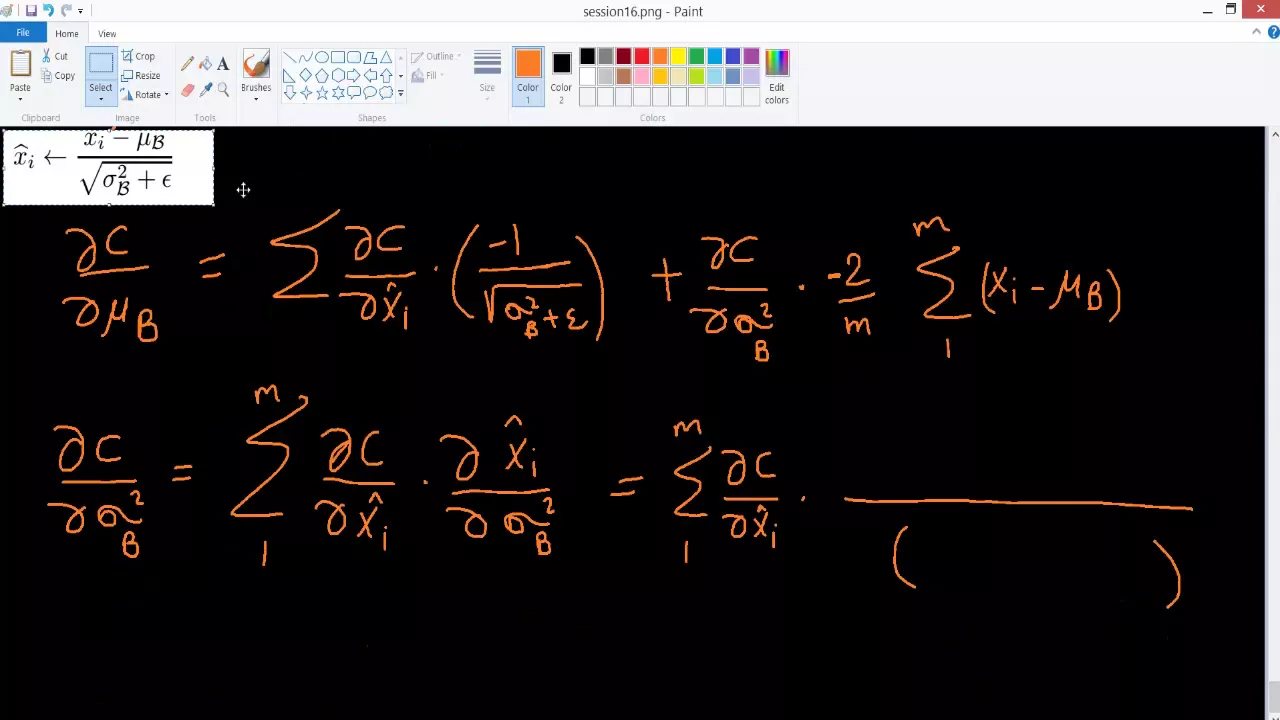 session16.png - Paint
File Home View
Paste Cut Copy Clipboard
Select Crop Resize Rotate Image
Tools
Brushes
Outline Fill Shapes
Size
Color 1 Color 2 Edit colors Colors
x̂ᵢ ← (xᵢ − μ_B) / √(σ_B² + ϵ)
∂C/∂μ_B = Σ ∂C/∂x̂ᵢ · (-1/√(σ_B² + ε)) + ∂C/∂σ_B² · -2/m Σ₁ᵐ (xᵢ - μ_B)
∂C/∂σ_B² = Σ₁ᵐ ∂C/∂x̂ᵢ · ∂x̂ᵢ/∂σ_B² = Σ₁ᵐ ∂C/∂x̂ᵢ · ( )